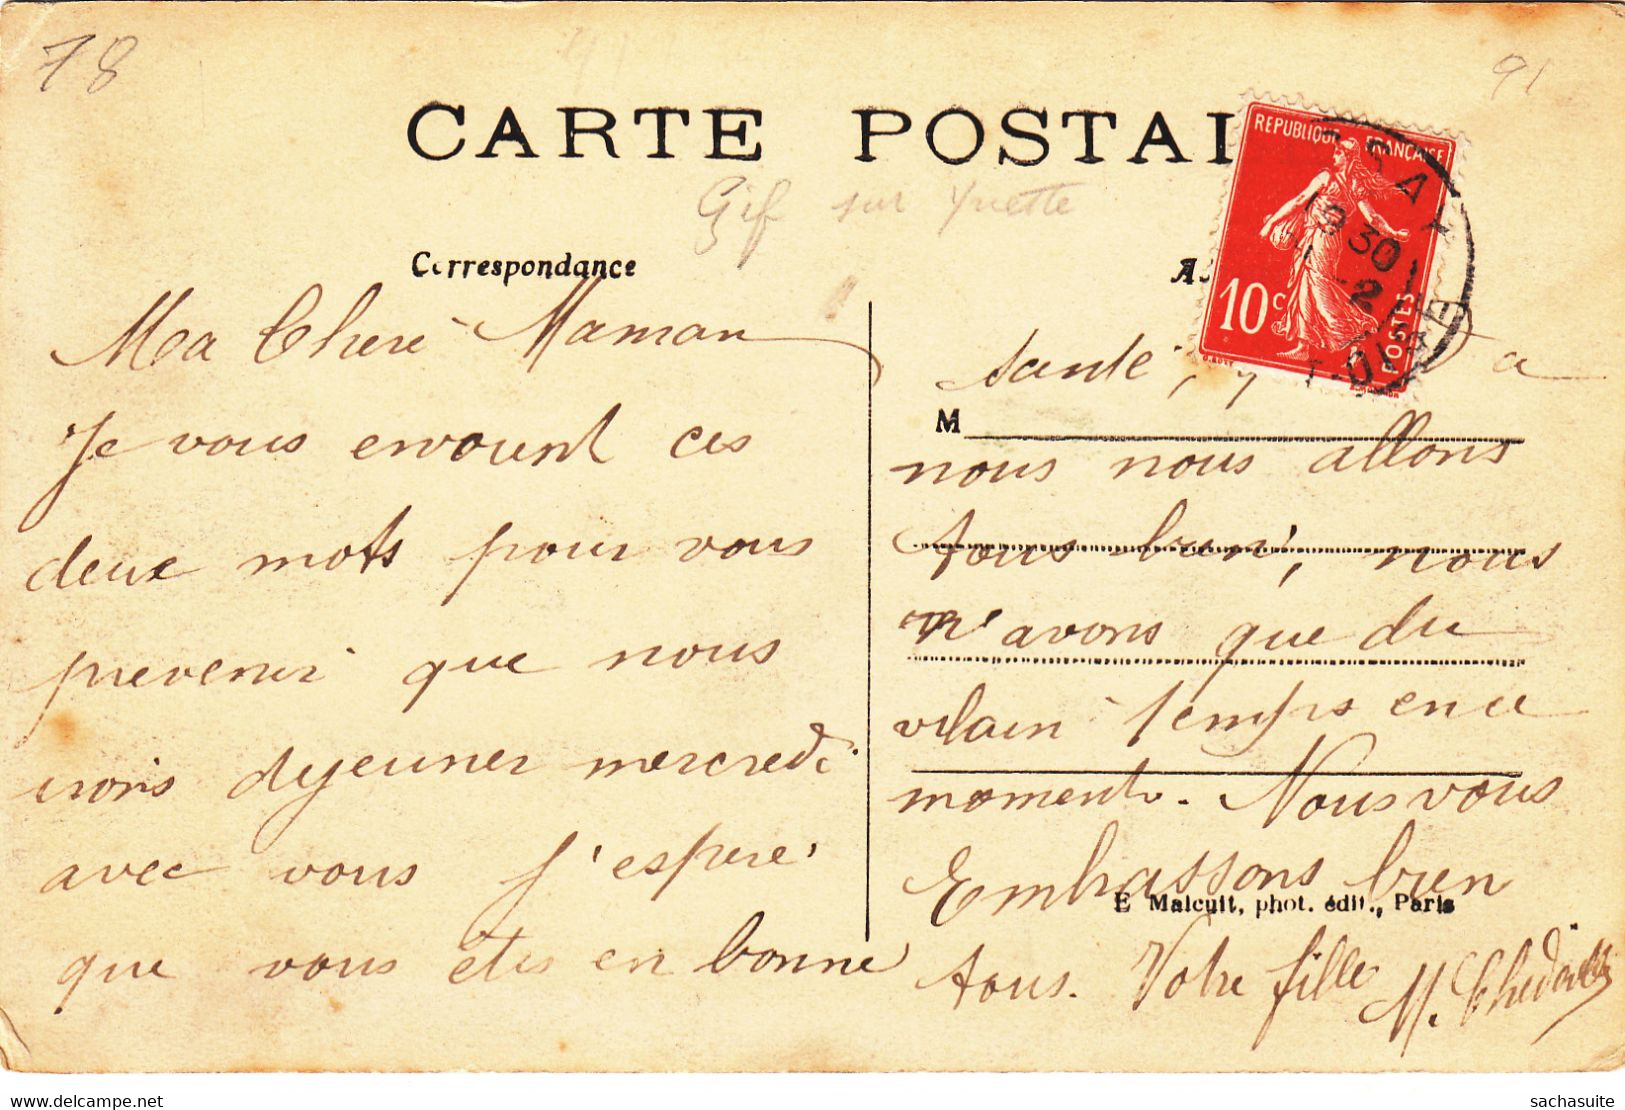 78
91
CARTE POSTAL
Gif sur Yvette
REPUBLIQUE FRANÇAISE
10c POSTES
30
2
Correspondance
Ma Chere Maman
Je vous envount ces
deux mots pour vous
prevenir que nous
irons dejeuner mercredi
avec vous j'espere
que vous êtes en bonne
santé, a
M
nous nous allons
tous bien, nous
n'avons que du
vilain temps en ce
moment. Nous vous
Embrassons bien
E Malcuit, phot. édit., Paris
tous. Votre fille M.
delcampe.net
sachasuite